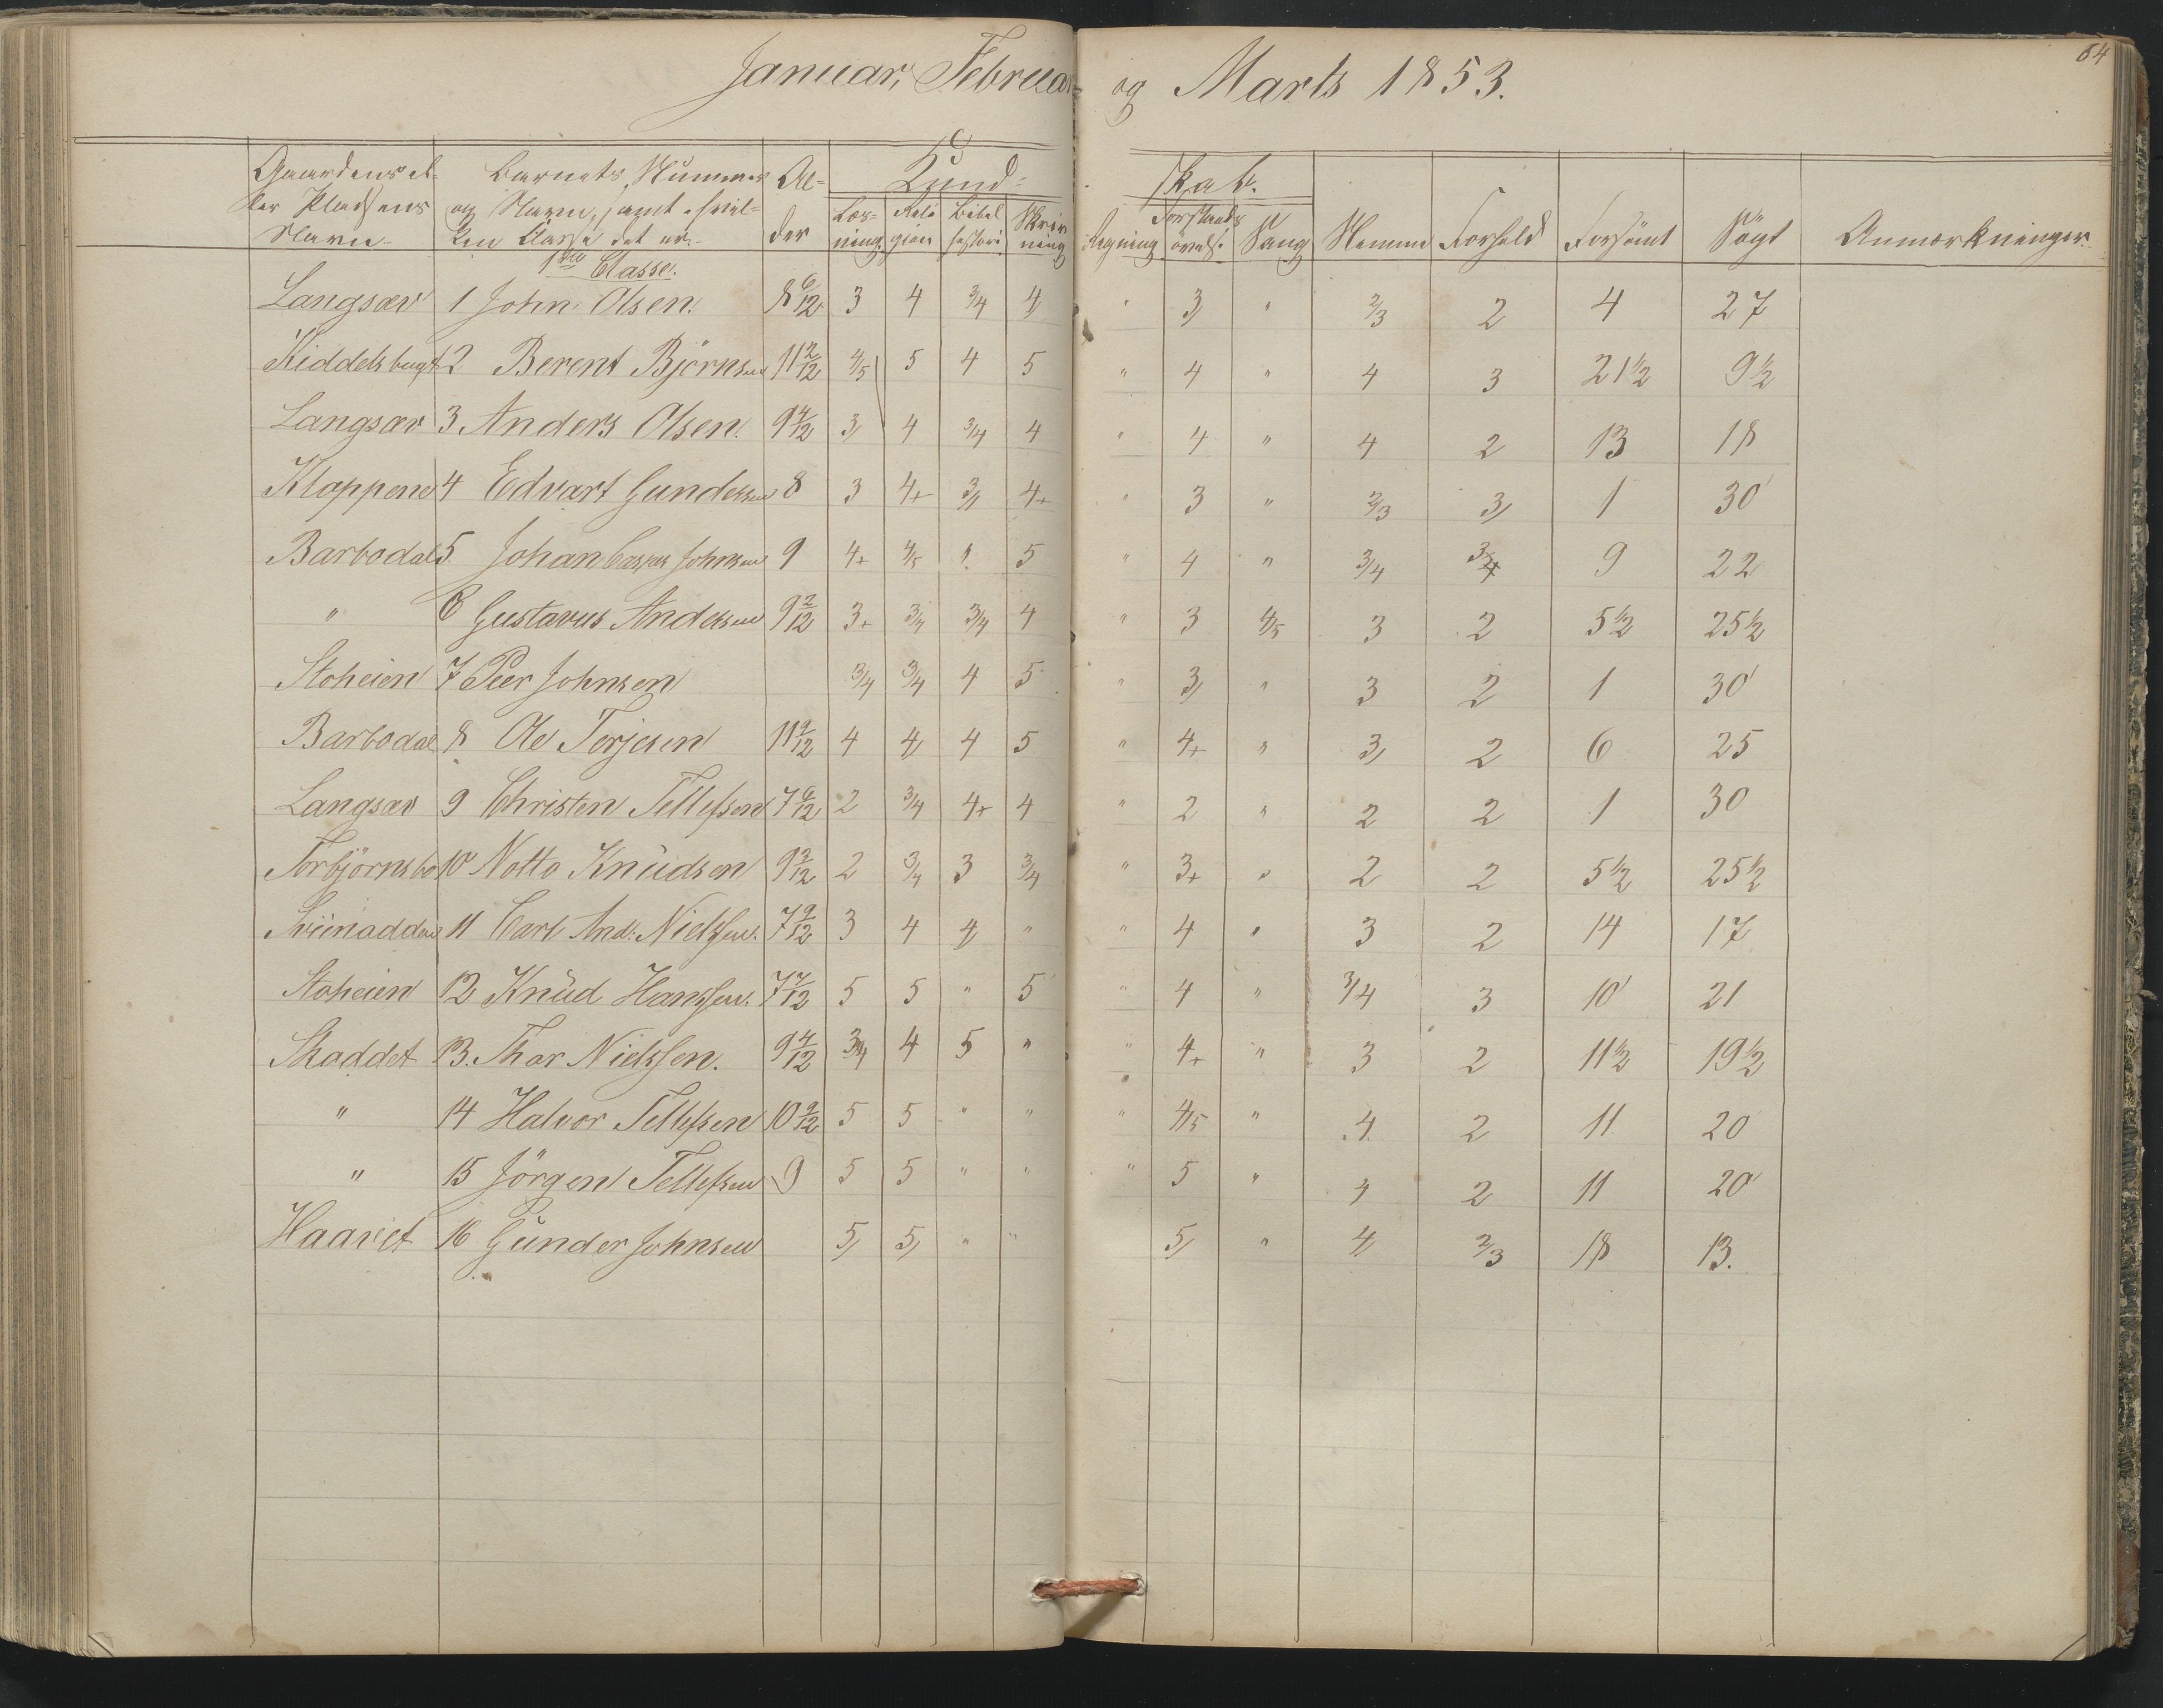 64
Januar, Februar- og Marts 1853.
Gaardens el- Barnets Nummer Al- Kund- skab.
ler Pladsens og Navn, samt hvil- Læs- Reli Bibel Skriv Forstands
Navn ken Classe det er. der ning. gion histori. ning Regning øvelse Sang Nemme Forhold Forsömt Sögt Anmærkninger
1ste Classe.
Langsæv 1 John Olsen. 8 6/12 3 4 3/4 4/ " 3/ " 2/3 2 4 27
Kiddelsbugt 2 Berent Björnsen 11 2/12 4/5 5 4 5 " 4 " 4 3 21 1/2 9 1/2
Langsæv 3 Anders Olsen. 9 4/12 3/ 4 3/4 4 " 4 " 4 2 13 18
Kloppene 4 Edvart Gundersen 8 3 4+ 3/4 4+ " 3 " 2/3 3/ 1 30
Barbodal 5 Johan Casper Johnsen 9 4+ 4/5 " 5 " 4 " 3/4 3/4 9 22
" 6 Gustavus Andersen 9 2/12 3+ 3/4 3/4 4 " 3 4/5 3 2 5 1/2 25 1/2
Stoheien 7 Peer Johnsen 3/4 3/4 4 5 " 3/ " 3 2 1 30
Barbodal 8 Ole Terjesen 11 9/12 4 4/ 4 5 " 4+ " 3/ 2 6 25
Langsæv 9 Christen Tellefsen 7 6/12 2 3/4 4+ 4 " 2 " 2 2 1 30
Torbjörnsbo 10 Notto Knüdsen 9 3/12 2 3/4 3 3/4 " 3+ " 2 2 5 1/2 25 1/2
11 Carl And: Nielssen. 7 9/12 3 4 4/ " " 4 " 3 2 14 17
Stoheien 12 Knüd Hanssen. 7 7/12 5 5 " 5 " 4 " 3/4 3 10 21
Skaddet 13. Thor Nielssen. 9 4/12 3/4 4 5 " " 4+ " 3 2 11 1/2 19 1/2
" 14 Halvor Tellefsen 10 9/12 5 5 " " " 4/5 " 4 2 11 20
" 15 Jörgen Tellefsen 9 5 5 " " " 5 " 4 2 11 20
Haaviet 16 Günder Johnsen 5/ 5/ " " 5/ " 4/ 2/3 18 13.